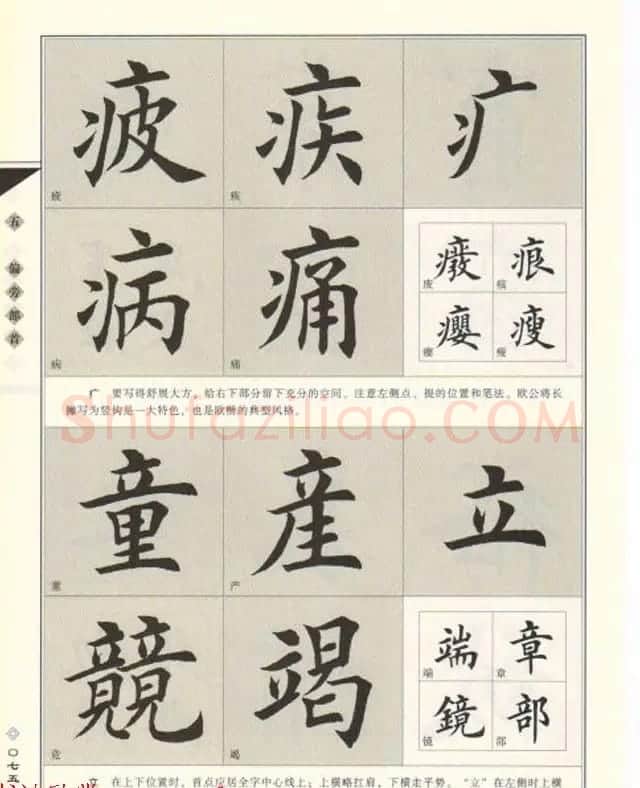 五 偏旁部首
疲 疾 疒
疲 疾
病 痛
病 痛
癈 痕
废 痕
癭 瘦
瘿 瘦
疒 要写得舒展大方，给右下部分留下充分的空间。注意左侧点、提的位置和笔法。欧公将长
撇写为竖钩是一大特色，也是欧楷的典型风格。
Shufaziliao.COM
童 産 立
童 产
競 竭
竞 竭
端 章
端 章
鏡 部
镜 部
立 在上下位置时，首点应居全字中心线上；上横略扛肩，下横走平势。“立”在左侧时上横
〇七五